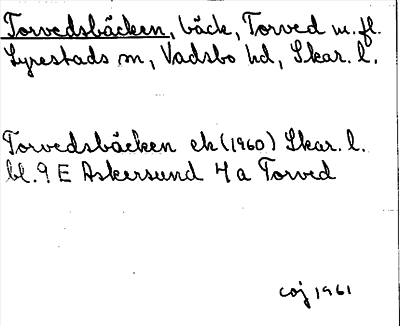 Torvedsbäcken, bäck, Torved m. fl.
Lyrestads sn, Vadsbo hd, Skar. l.
Torvedsbäcken ek (1960) Skar. l.
bl. 9 E Askersund 4 a Torved
coj 1961